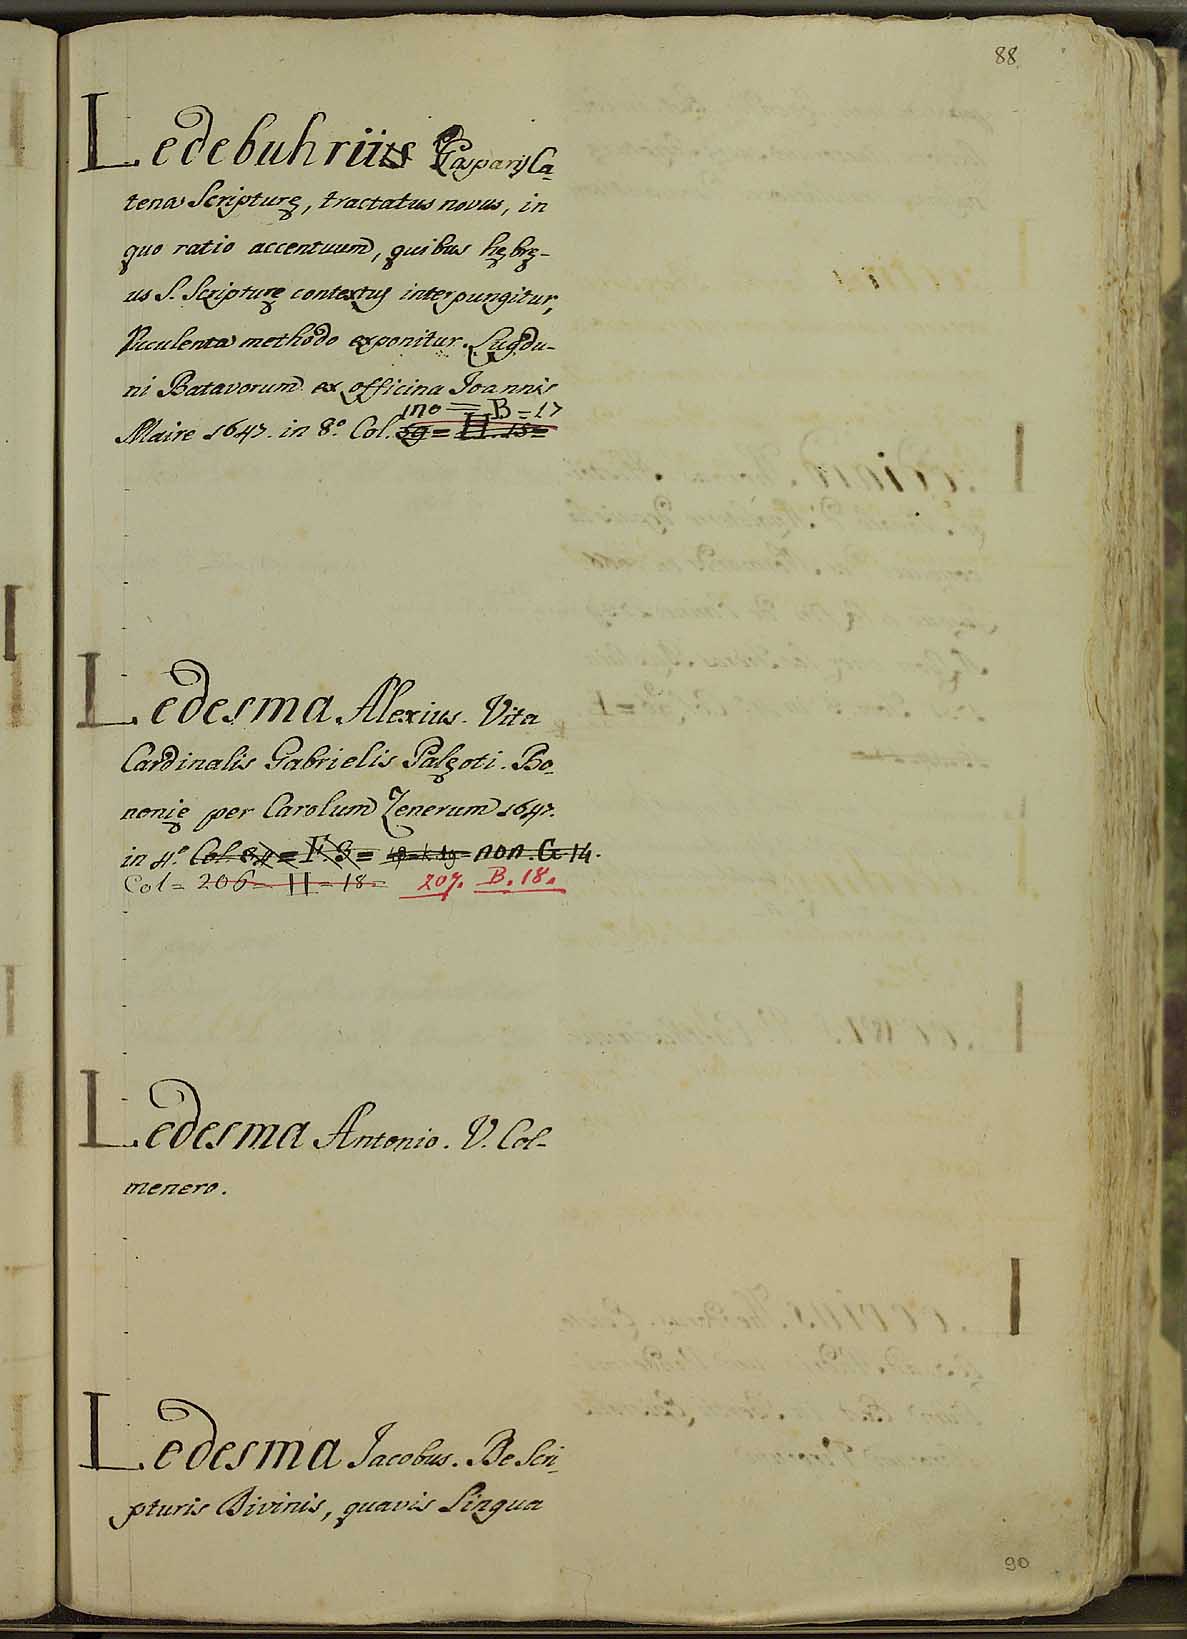 88
Ledebuhrii Casparis Ca-
tena Scripturę, tractatus novus, in
quo ratio accentuum, quibus hębrę-
us S. Scripturę contextus interpungitur,
luculenta methodo exponitur. Lugdu-
ni Batavorum ex officina Joannis
170 = B = 17
Maire 1647. in 8.º Col. 39 = H. 15 =
Ledesma Alexius. Vita
Cardinalis Gabrielis Palęoti. Bo-
nonię per Carolum Zenerum 1647.
in 4.º Col. 84 = F. 3 = non. G 14.
Col = 206 = H = 18 = 207. B. 18.
Ledesma Antonio. V. Col-
menero.
Ledesma Jacobus. De Scri-
pturis Divinis, quavis Lingua
90